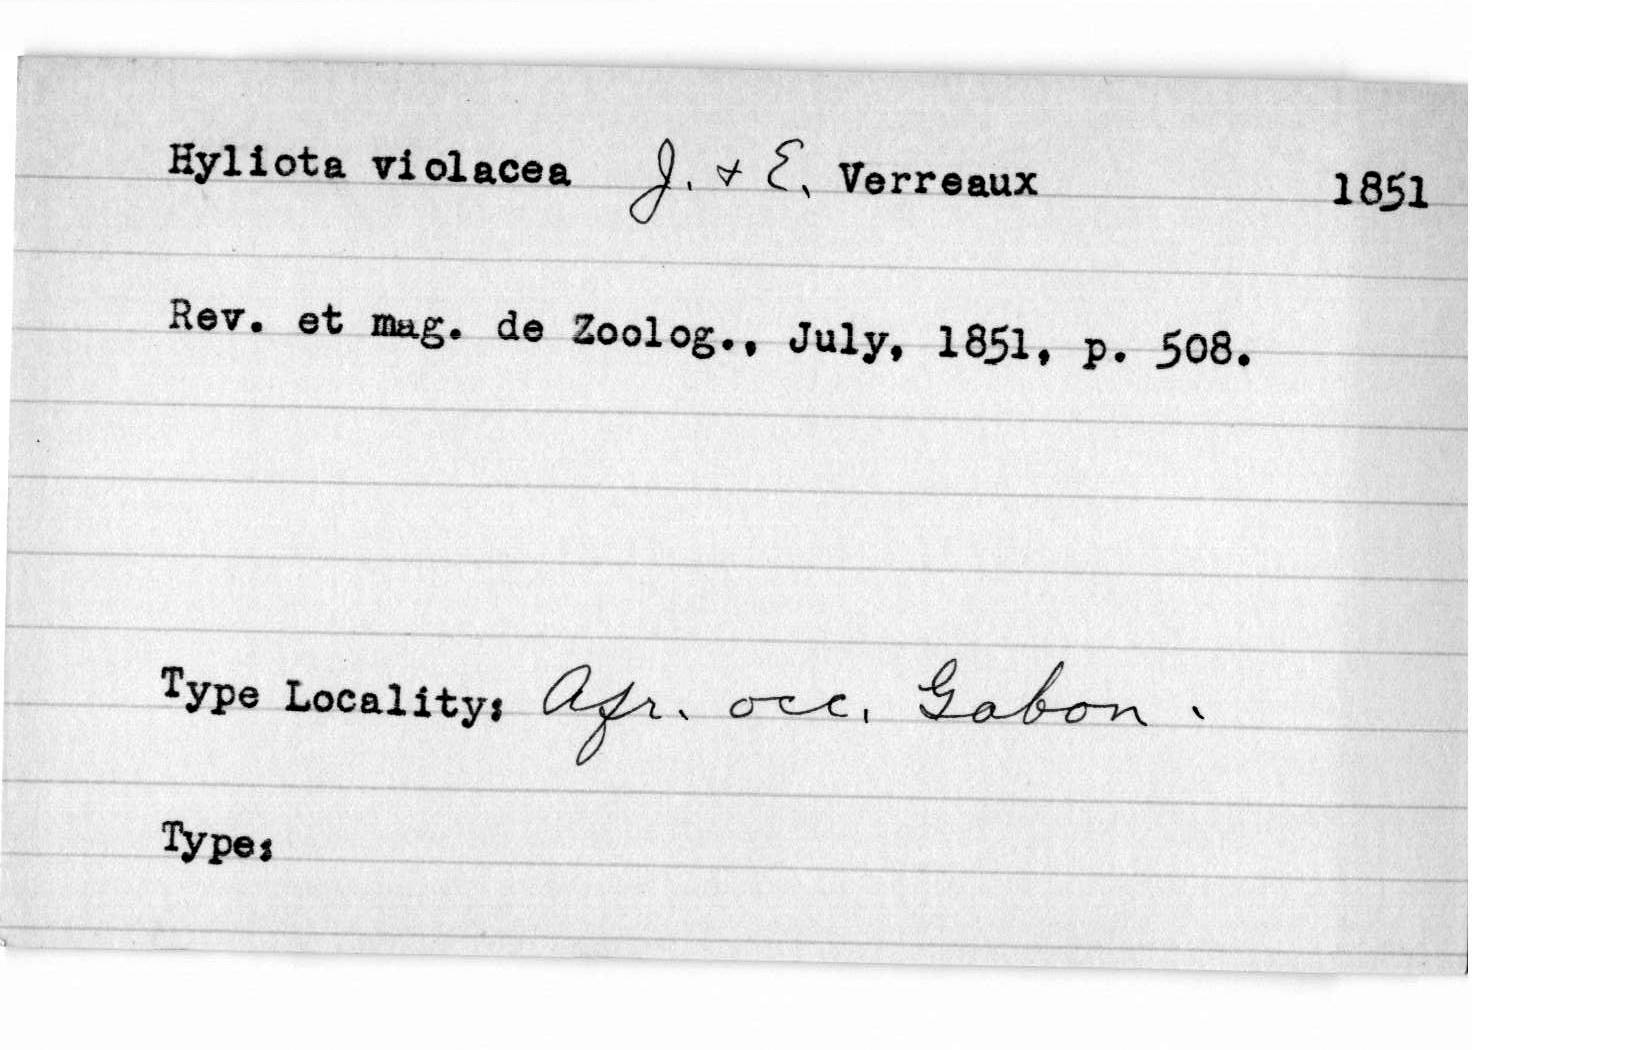 Hyliota violacea J. & E. Verreaux 1851
Rev. et mag. de Zoolog., July, 1851, p. 508.
Type Locality: Afr. occ. Gabon.
Type: